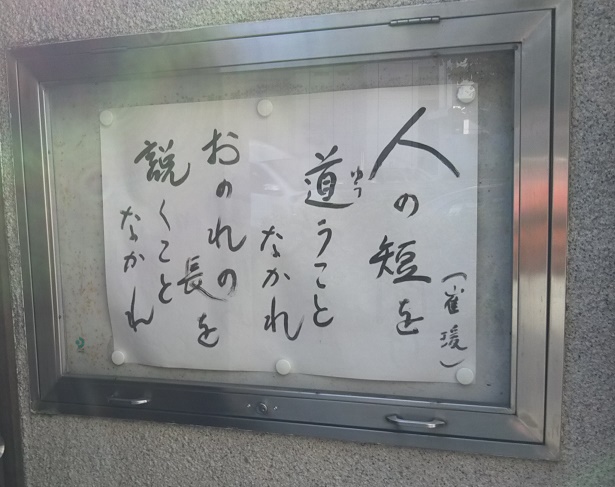 人の短を
(崔瑗)
道うこと
ゆう
なかれ
おのれの長を
説くこと
なかれ